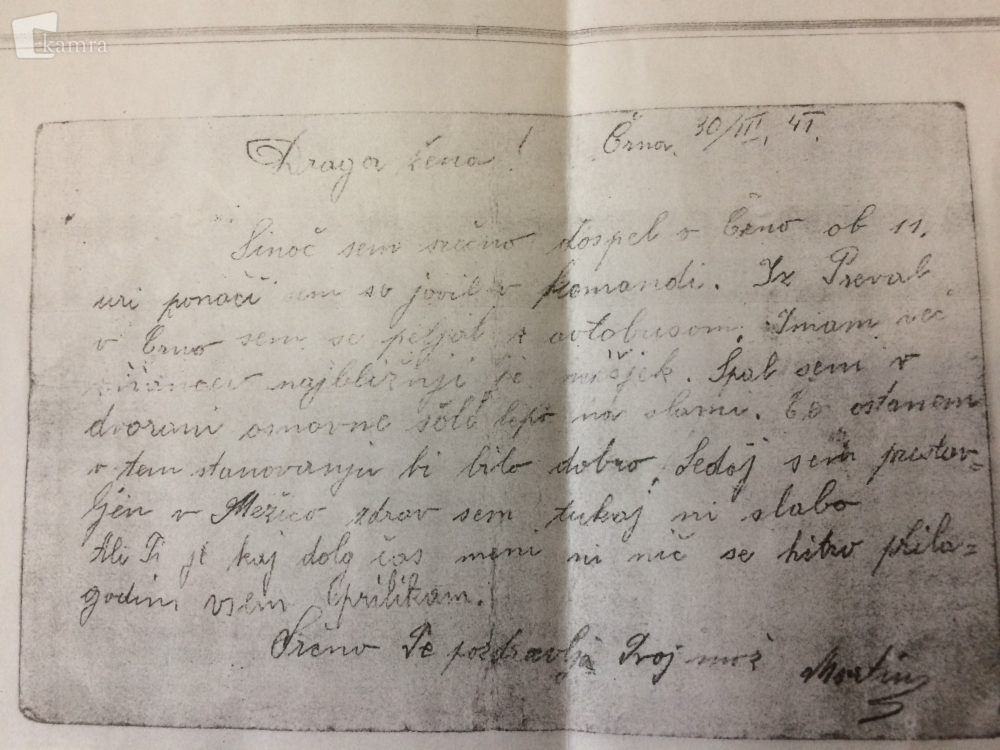 kamra
Draga žena! Črna, 30/III, 41.
Sinoč sem srečno dospel v Črno ob 11.
uri ponoči sem se javil v komandi. Iz Preval
v Črno sem se peljal z avtobusom. Imam več
znancev najbližnji je Spal sem v
dvorani osnovne šole lepo na slami. Če ostanem
v tem stanovanju bi bilo dobro. Sedaj sem prestav=
ljen v Mežico zdrav sem tukaj ni slabo
Ali Ti je kaj dolg čas meni ni nič se hitro prila=
godim vsem prilikam.
Srčno Te pozdravlja Tvoj mož Martin